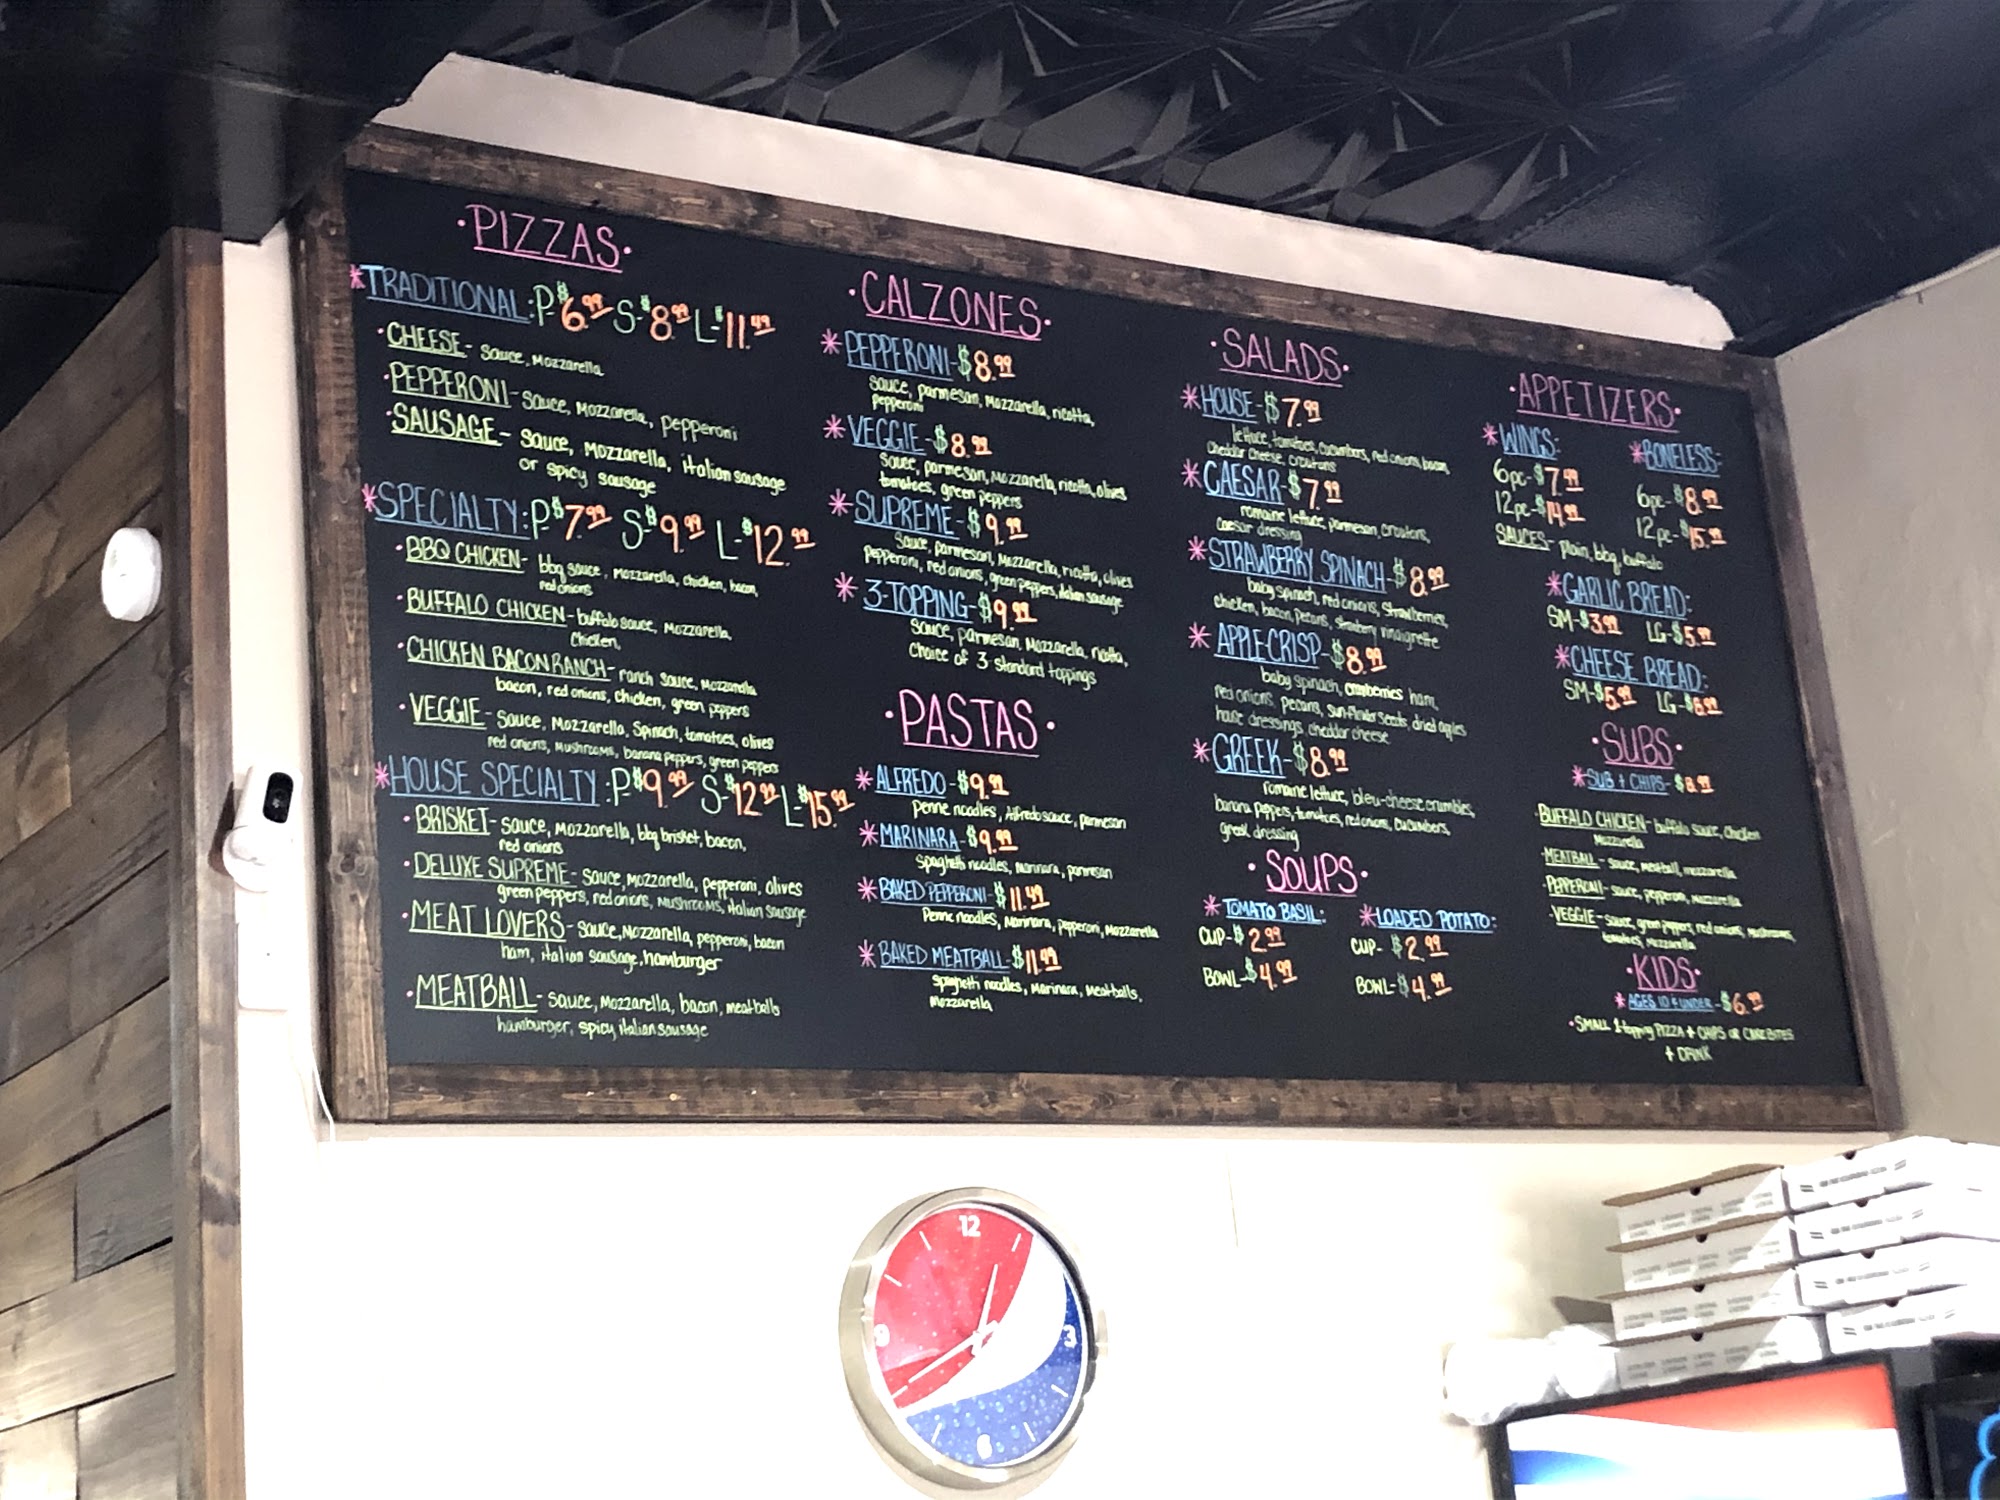 ·PIZZAS·
*TRADITIONAL: P-$6.99 S-$8.99 L-$11.49
·CHEESE- Sauce, Mozzarella
·PEPPERONI- Sauce, Mozzarella, pepperoni
·SAUSAGE- Sauce, Mozzarella, italian sausage
or spicy sausage
*SPECIALTY: P-$7.99 S-$9.99 L-$12.99
·BBQ CHICKEN- bbq sauce, Mozzarella, chicken, bacon,
red onions
·BUFFALO CHICKEN- buffalo sauce, Mozzarella,
Chicken,
·CHICKEN BACON RANCH- ranch sauce, Mozzarella
bacon, red onions, chicken, green peppers
·VEGGIE- Sauce, Mozzarella, Spinach, tomatoes, olives
red onions, Mushrooms, banana peppers, green peppers
*HOUSE SPECIALTY: P-$9.99 S-$12.99 L-$15.99
·BRISKET- Sauce, Mozzarella, bbq brisket, bacon,
red onions
·DELUXE SUPREME- Sauce, Mozzarella, pepperoni, olives
green peppers, red onions, Mushrooms, italian Sausage
·MEAT LOVERS- Sauce, Mozzarella, pepperoni, bacon
ham, italian sausage, hamburger
·MEATBALL- sauce, Mozzarella, bacon, meatballs
hamburger, spicy italian sausage
·CALZONES·
*PEPPERONI-$8.99
Sauce, parmesan, Mozzarella, ricotta,
pepperoni
*VEGGIE-$8.99
Sauce, parmesan, Mozzarella, ricotta, olives
tomatoes, green peppers
*SUPREME-$9.99
Sauce, parmesan, Mozzarella, ricotta, olives
pepperoni, red onions, green peppers, italian sausage
*3-TOPPING-$9.99
Sauce, parmesan, Mozzarella, ricotta,
Choice of 3 standard toppings
·PASTAS·
*ALFREDO-$9.99
Penne noodles, Alfredo sauce, parmesan
*MARINARA-$9.99
Spaghetti noodles, marinara, parmesan
*BAKED PEPPERONI-$11.49
Penne noodles, Marinara, pepperoni, Mozzarella
*BAKED MEATBALL-$11.99
Spaghetti noodles, Marinara, Meatballs,
Mozzarella
·SALADS·
*HOUSE-$7.99
lettuce, tomatoes, cucumbers, red onions, bacon,
Cheddar cheese, croutons
*CAESAR-$7.99
romaine lettuce, parmesan, croutons,
Caesar dressing
*STRAWBERRY SPINACH-$8.99
baby spinach, red onions, strawberries,
chicken, bacon, pecans, strawberry vinaigrette
*APPLE-CRISP-$8.99
baby spinach, cranberries ham,
red onions, pecans, sun-flower seeds, dried apples
house dressings, cheddar cheese
*GREEK-$8.99
romaine lettuce, bleu-cheese crumbles,
banana peppers, tomatoes, red onions, cucumbers,
greek dressing
·SOUPS·
*TOMATO BASIL:
CUP-$2.99
BOWL-$4.99
*LOADED POTATO:
CUP-$2.99
BOWL-$4.99
·APPETIZERS·
*WINGS:
6pc-$7.99
12pc-$14.99
*BONELESS:
6pc-$8.99
12pc-$15.99
SAUCES- plain, bbq, buffalo
*GARLIC BREAD:
SM-$3.99 LG-$5.99
*CHEESE BREAD:
SM-$5.99 LG-$8.99
·SUBS·
*SUB + CHIPS-$8.99
·BUFFALO CHICKEN- buffalo sauce, chicken
Mozzarella
·MEATBALL- sauce, meatball, mozzarella
·PEPPERONI- sauce, pepperoni, mozzarella
·VEGGIE- Sauce, green peppers, red onions, mushrooms,
tomatoes, mozzarella
·KIDS·
*AGES 10 & UNDER-$6.99
·SMALL 1-topping PIZZA + CHIPS OR CAKE BITES
+ DRINK
12
3
6
9